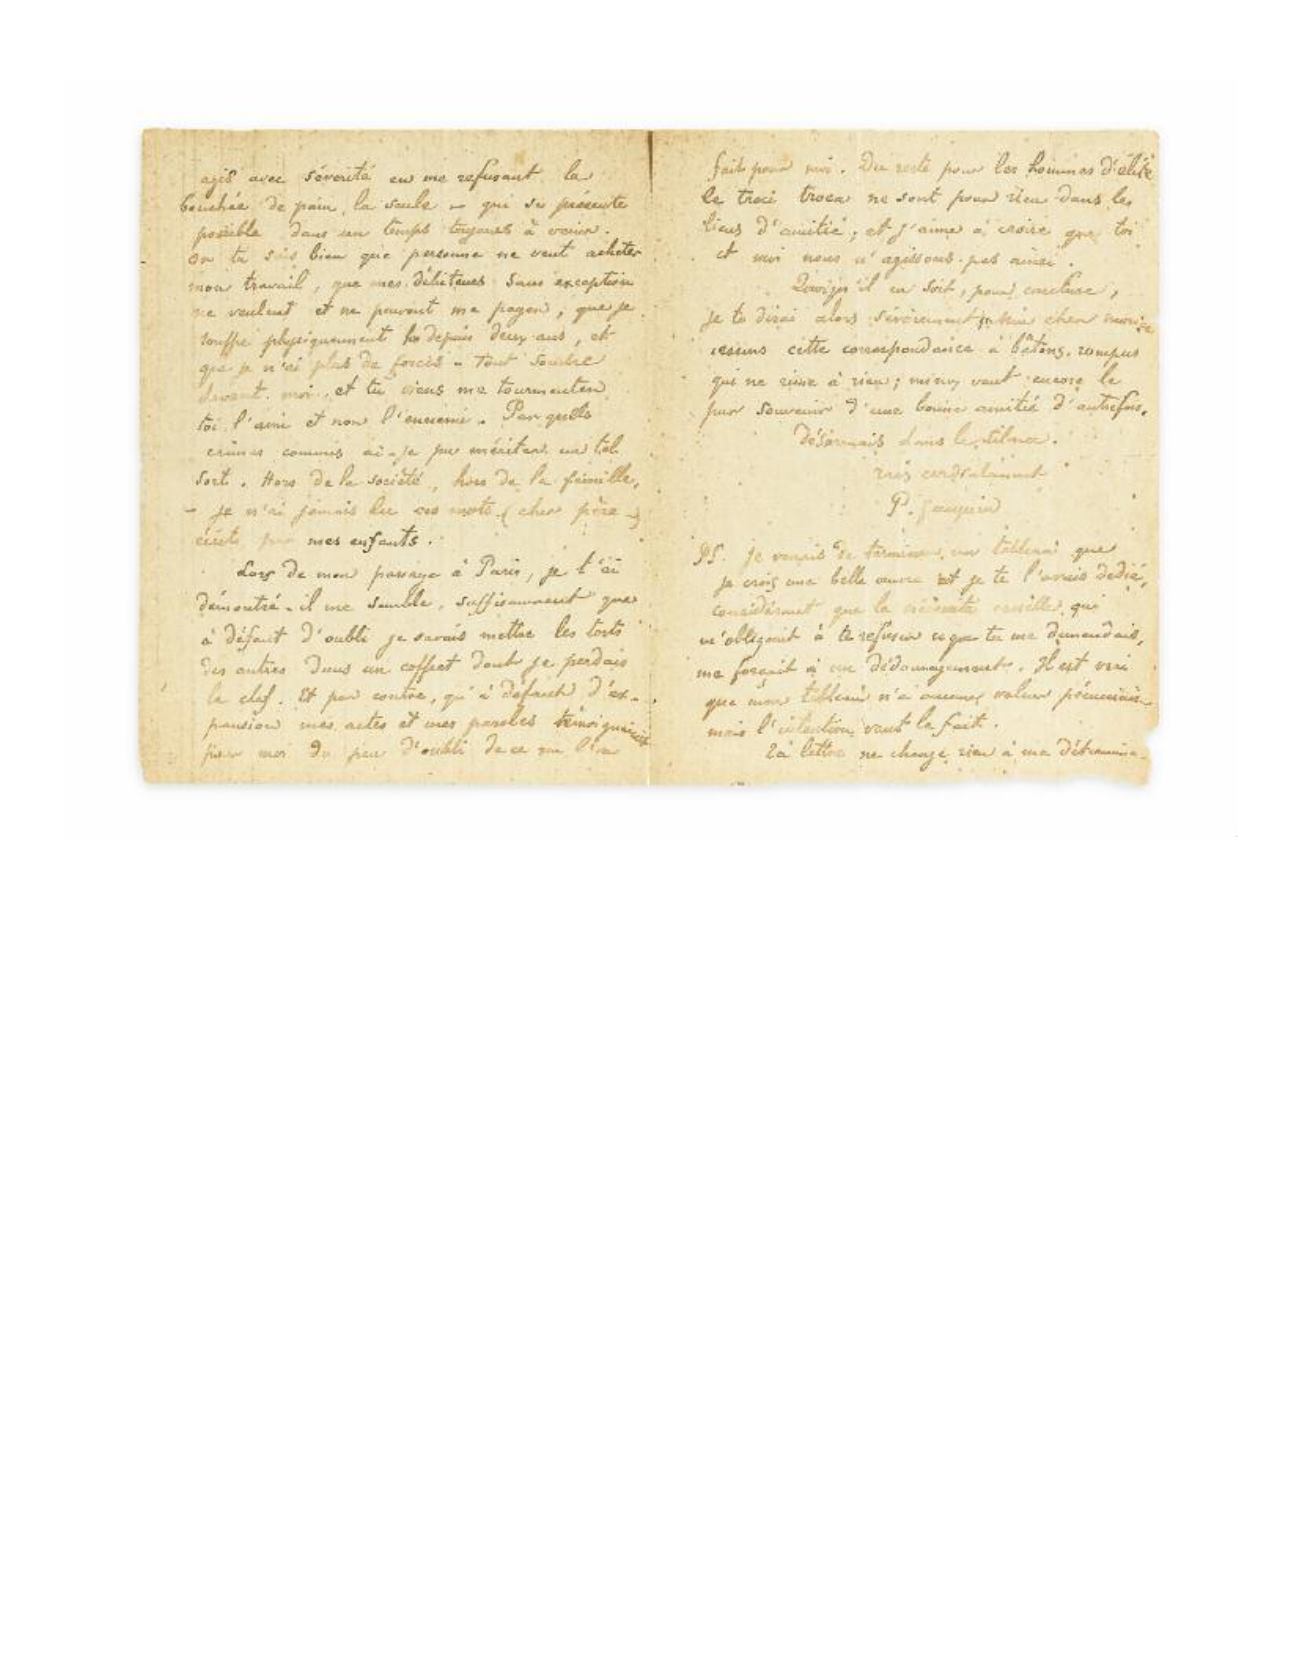 agis avec sévérité en me refusant la
bouchée de pain, la seule - qui se présente
possible dans un temps toujours à venir.
Or tu sais bien que personne ne veut acheter
mon travail, que mes débiteurs sans exception
ne veulent et ne peuvent me payer, que je
souffre physiquement depuis deux ans, et
que je n'ai plus de forces - tout sombre
devant moi, et tu viens me tourmenter
toi l'ami et non l'ennemi. Par quels
crimes commis ai-je pu mériter un tel
sort. Hors de la société, hors de la famille,
- je n'ai jamais lu ces mots (cher père -)
écrits par mes enfants.
Lors de mon passage à Paris, je t'ai
démontré - il me semble, suffisamment que
à défaut d'oubli je savais mettre les torts
des autres dans un coffret dont je perdais
la clef. Et par contre, qu'à défaut d'ex-
pansion mes actes et mes paroles témoignaient
pour moi du peu d'oubli de ce
fait pour moi. Du reste pour les hommes d'élite
le troci troca ne sont pour rien dans les
liens d'amitié, et j'aime à croire que toi
et moi nous n'agissons pas ainsi.
Quoiqu'il en soit, pour conclure,
je te dirai alors sévèrement mon cher
cessons cette correspondance à bâtons rompus
qui ne rime à rien; mieux vaut encore le
pur souvenir d'une bonne amitié d'autrefois,
désormais dans le silence.
très cordialement
P. Gauguin
PS. Je venais de terminer un tableau que
je crois une belle œuvre et je te l'avais dédié,
considérant que la nécessité cruelle, qui
m'obligeait à te refuser ce que tu me demandais,
me forçait à un dédomagement. Il est vrai
que mon tableau n'a aucune valeur pécuniaire
mais l'intention vaut le fait.
Ta lettre ne change rien à ma détermina-